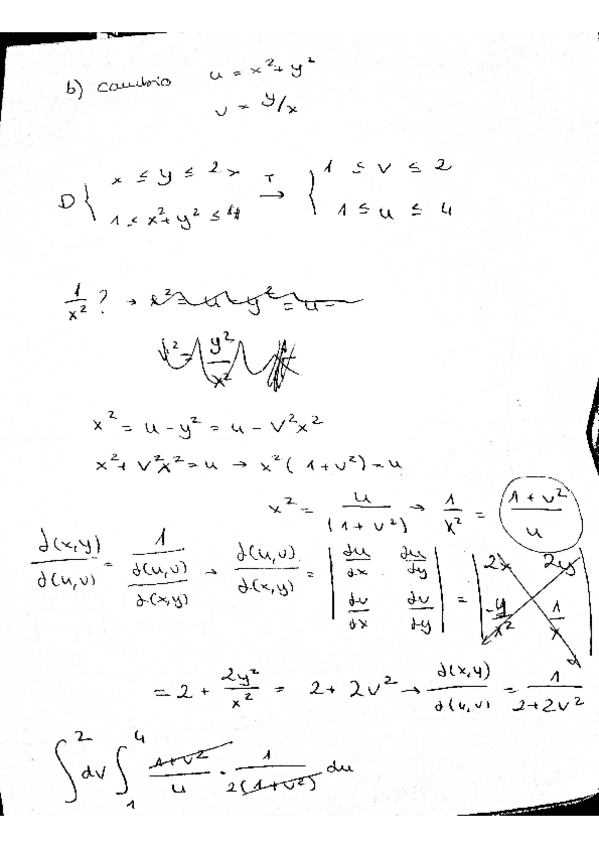 b) cambio u = x²+y²
v = y/x
D { x ≤ y ≤ 2x T→ { 1 ≤ v ≤ 2
1 ≤ x²+y² ≤ 4 1 ≤ u ≤ 4
1/x² ? →
x² = u - y² = u - v²x²
x² + v²x² = u → x²(1+v²) = u
x² = u/(1+v²) → 1/x² = (1+v²)/u
∂(x,y)/∂(u,v) = 1/(∂(u,v)/∂(x,y)) → ∂(u,v)/∂(x,y) = | ∂u/∂x ∂u/∂y ; ∂v/∂x ∂v/∂y | = | 2x 2y ; -y/x² 1/x |
= 2 + 2y²/x² = 2 + 2v² → ∂(x,y)/∂(u,v) = 1/(2+2v²)
∫² dv ∫₁⁴ (1+v²)/u · 1/(2(1+v²)) du